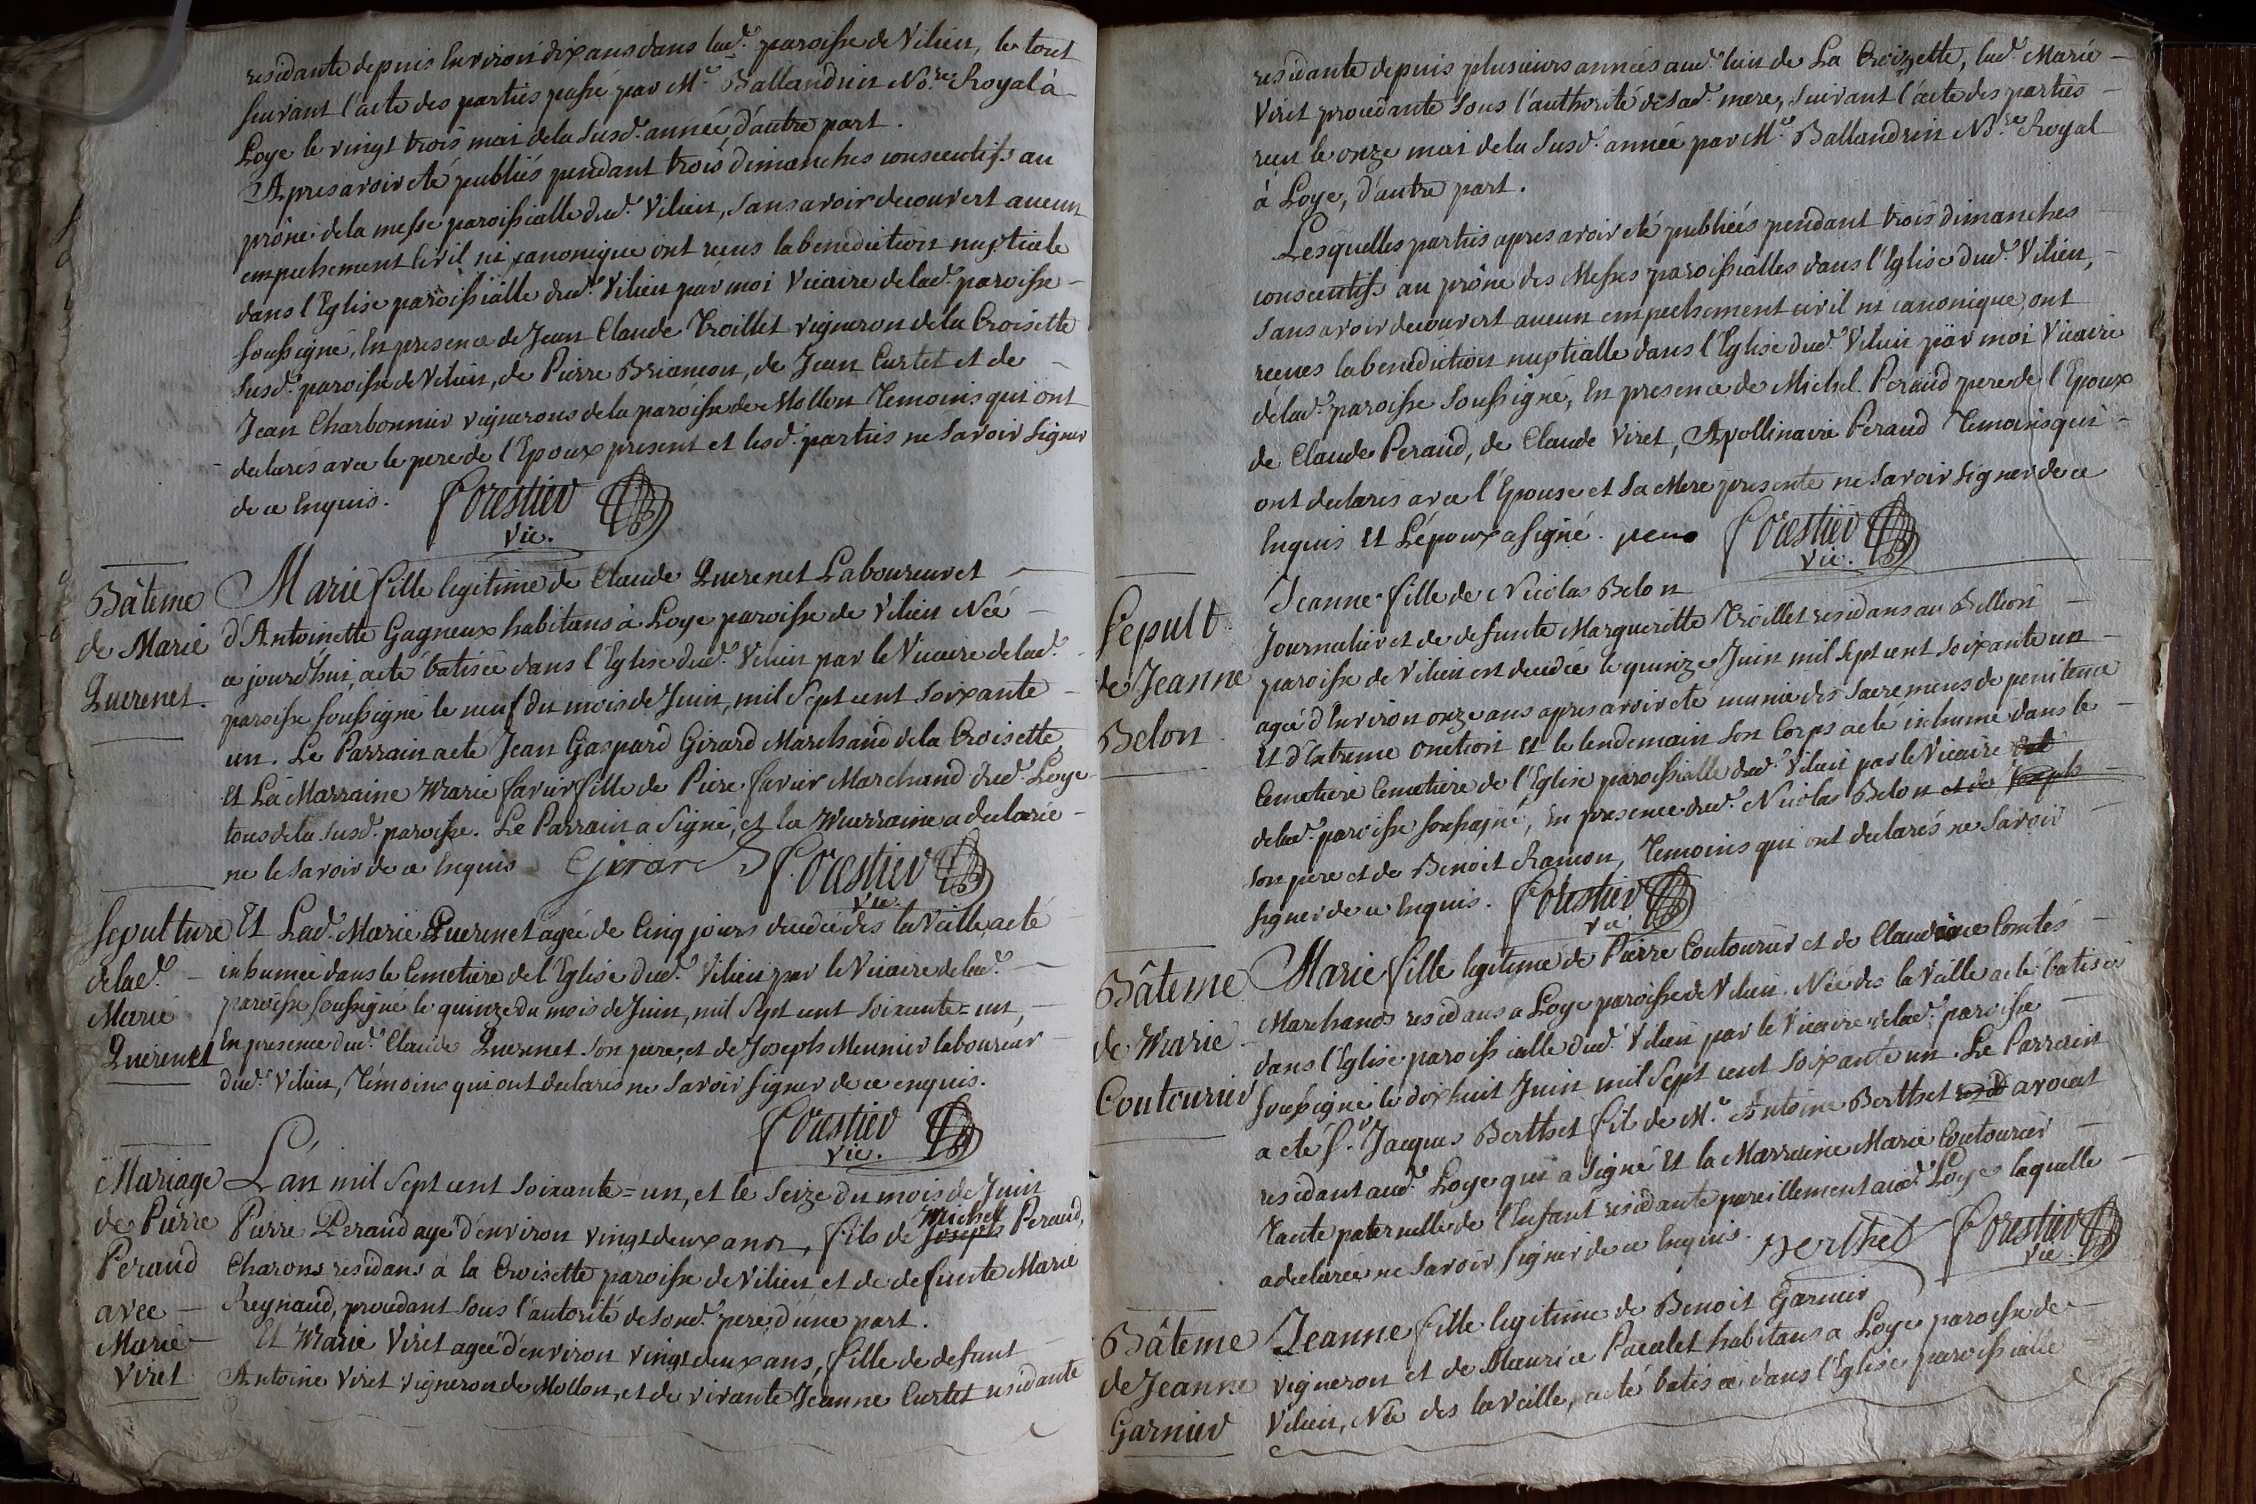 residante depuis Environ dix ans dans lad.e paroisse de Vilieu, le tout
suivant l'acte des parties passé par M.e Ballandrin No.re Royal à
Loye le vingt trois mai de la susd.e année d'autre part.
Apres avoir eté publiés pendant trois dimanches consecutifs au
prône de la messe paroissialle dud.t Vilieu, sans avoir decouvert aucun
empechement civil ni canonique ont reçus la benediction nuptiale
dans l'Eglise paroissialle dud.t Vilieu par moi Vicaire de lad.e paroisse
soussigné, En presence de Jean Claude Troillet vigneron de la Croisette
susd.e paroisse de Vilieu, de Pierre Briancon, de Jean Curtet et de
Jean Charbonnier vignerons de la paroisse de Mollon Temoins qui ont
declarés avec le pere de l'Epoux present et lesd. parties ne savoir signer
de ce Enquis. Forestier
vic.
Bâteme
de Marie
Querenet.
Marie fille legitime de Claude Querenet Laboureur et
d'Antoinette Gagneux habitans à Loye paroisse de Vilieu Née
ce jourd'hui, a eté batisée dans l'Eglise dud.t Vilieu par le Vicaire de lad.e
paroisse soussigné le neuf du mois de Juin, mil sept cent soixante
un. Le Parrain a eté Jean Gaspard Girard Marchand de la Croisette
Et La Marraine Marie favier fille de Piere favier Marchand dud.t Loye
tous de la susd.e paroisse. Le Parrain a signé, et la Marraine a declarée
ne le savoir de ce Enquis Girard Forestier
vic.
Sepulture
de lad.e
Marie
Querenet
Et Lad.e Marie Querenet agée de Cinq jours decedée dès la veille, a eté
inhumée dans le Cemetiere de l'Eglise dud.t Vilieu par le Vicaire de lad.e
paroisse soussigné le quinze du mois de Juin, mil sept cent soixante=un,
En presence dud.t Claude Querenet son pere, et de Joseph Meunier laboureur
dud.t Vilieu, Témoins qui ont declarés ne savoir signer de ce enquis.
Forestier
vic.
Mariage
de Pierre
Peraud
avec
Marie
Viret
L'an mil sept cent soixante=un, et le seize du mois de Juin
Pierre Peraud agé d'environ vingt deux ans, fils de Joseph Michel Peraud,
Charons residans à la Croisette paroisse de Vilieu et de defunte Marie
Reynaud, procedant sous l'autorité de sond.t pere, d'une part.
Et Marie Viret agée d'environ vingt deux ans, fille de defunt
Antoine Viret vigneron de Mollon, et de vivante Jeanne Curtet residante
residante depuis plusieurs années aud.t lieu de La Croizette, lad.e Marie
Viret procedante sous l'authorité de sad.e mere, suivant l'acte des parties
recu le onze mai de la susd.e année par M.e Ballandrin No.re Royal
à Loye, d'autre part.
Lesquelles parties apres avoir eté publiées pendant trois dimanches
consecutifs au prône des Messes paroissialles dans l'Eglise dud.t Vilieu,
sans avoir decouvert aucun empechement civil ni canonique, ont
recues la benediction nuptialle dans l'Eglise dud.t Vilieu par moi Vicaire
de lad.e paroisse soussigné, En presence de Michel Peraud pere de l'Epoux
de Claude Peraud, de Claude Viret, Apollinaire Peraud Temoins qui
ont declarés avec l'Epouse et sa Mere presente ne savoir signer de ce
Enquis Et L'époux a signé. Forestier
vic.
Sepult.
de Jeanne
Belon
Jeanne fille de Nicolas Belon
Journalier et de defunte Marguerite Troillet residans au Billion
paroisse de Vilieu est decedée le quinze Juin mil sept cent soixante un
agée d'Environ onze ans apres avoir eté munie des sacremens de penitence
Et d'Extreme onction Et le lendemain son Corps a eté inhumé dans le
Cemetiere Cemetiere de l'Eglise paroissialle dud.t Vilieu par le Vicaire
de lad.e paroisse soussigné, En presence dud.t Nicolas Belon et de Joseph
son pere et de Benoit Ramon, Temoins qui ont declarés ne savoir
signer de ce Enquis. Forestier
vic
Bâteme
de Marie
Coutourier
Marie fille legitime de Pierre Coutourier et de Claudine Comtés
Marchands residans a Loye paroisse de Vilieu. Née dès la Veille a eté batisée
dans l'Eglise paroissialle dud.t Vilieu par le Vicaire de lad.e paroisse
soussigné le dix huit Juin mil sept cent soixante un. Le Parrain
a eté S.r Jacques Berthet fils de M.e Antoine Berthet avocat
residant aud.t Loye qui a signé Et la Marraine Marie Coutourier
Tante paternelle de l'Enfant residante pareillement aud.t Loye laquelle
a declarée ne savoir signer de ce Enquis. Berthet Forestier
vic.
Bâteme
de Jeanne
Garnier
Jeanne fille legitime de Benoit Garnier
vigneron et de Maurice Pacalet habitans a Loye paroisse de
Vilieu, Née des la veille, a eté batisée dans l'Eglise paroissialle